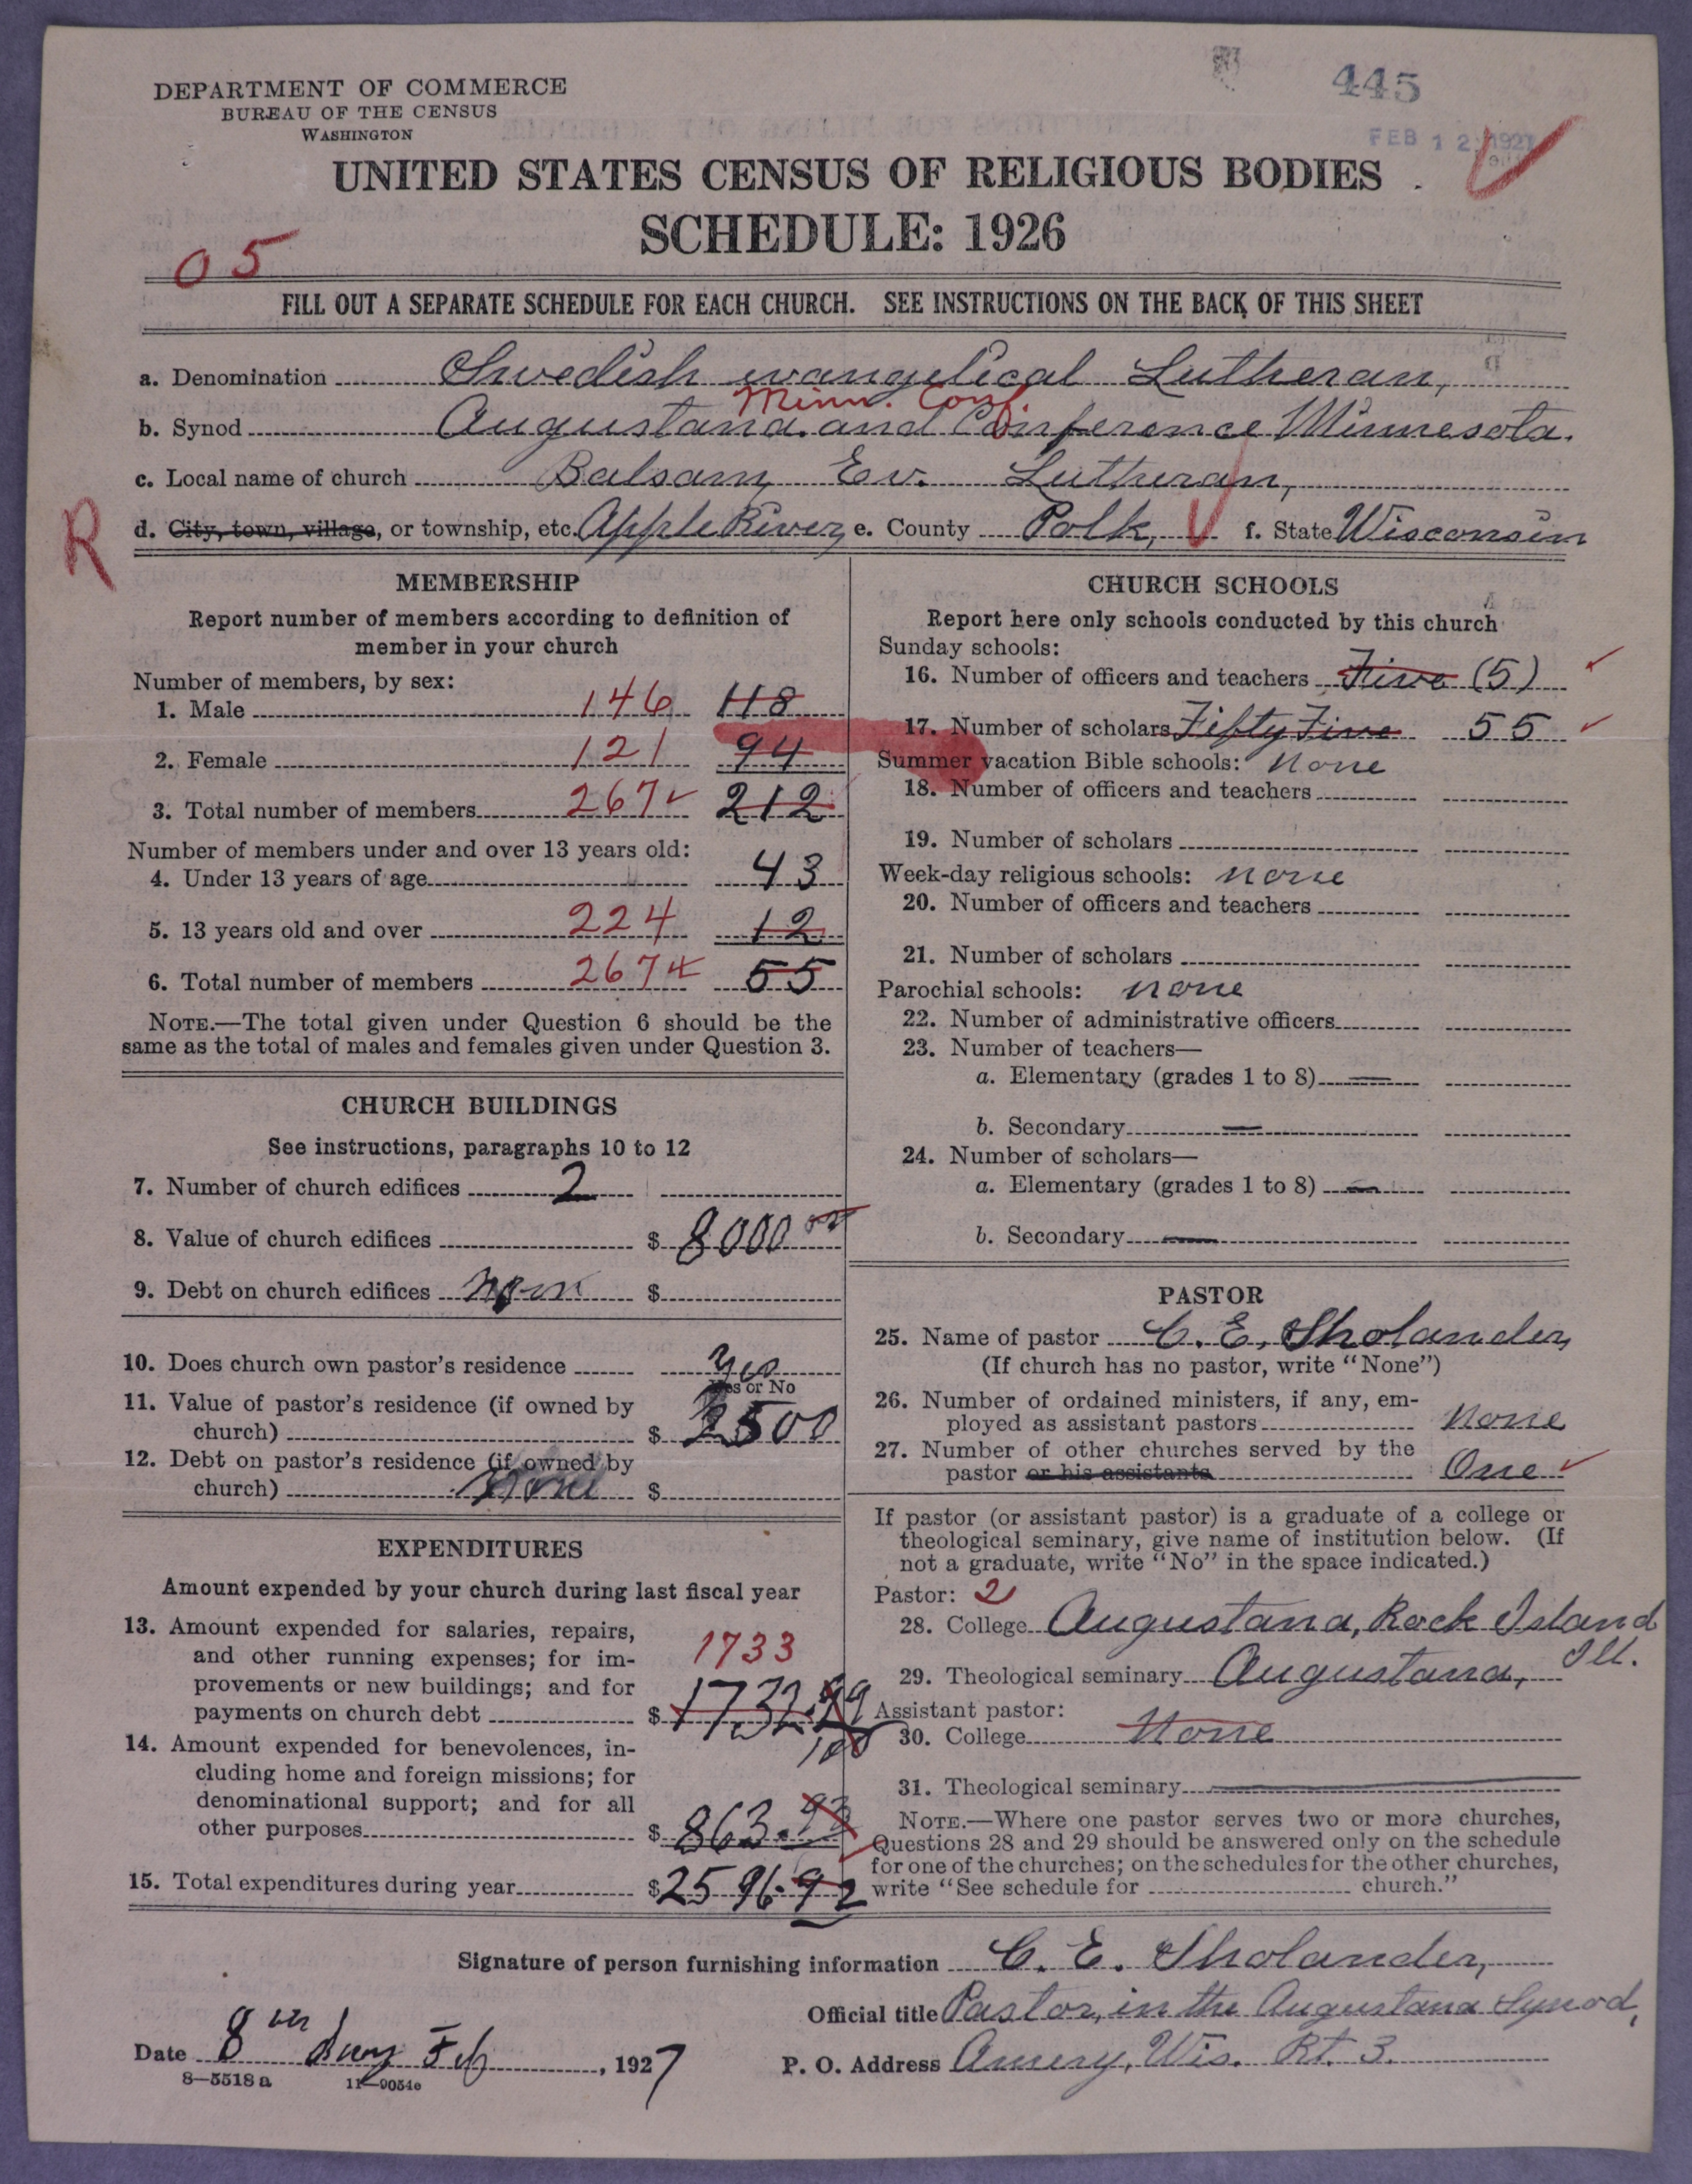 445
DEPARTMENT OF COMMERCE
BUREAU OF THE CENSUS
WASHINGTON
FEB 12 1927
UNITED STATES CENSUS OF RELIGIOUS BODIES
SCHEDULE: 1926
05
FILL OUT A SEPARATE SCHEDULE FOR EACH CHURCH. SEE INSTRUCTIONS ON THE BACK OF THIS SHEET
a. Denomination Swedish evangelical Lutheran,
Minn. Conf.
b. Synod Augustana and Conference Minnesota.
c. Local name of church Balsam Ev. Lutheran,
R
d. City, town, village, or township, etc. Apple River, e. County Polk, f. State Wisconsin
MEMBERSHIP
Report number of members according to definition of
member in your church
Number of members, by sex:
1. Male 146 118
2. Female 121 94
3. Total number of members 267 212
Number of members under and over 13 years old:
4. Under 13 years of age 43
5. 13 years old and over 224 12
6. Total number of members 267 55
NOTE.—The total given under Question 6 should be the
same as the total of males and females given under Question 3.
CHURCH BUILDINGS
See instructions, paragraphs 10 to 12
7. Number of church edifices 2
8. Value of church edifices $ 8000 00
9. Debt on church edifices None $
10. Does church own pastor's residence Yes
Yes or No
11. Value of pastor's residence (if owned by
church) $ 2500
12. Debt on pastor's residence (if owned by
church) None $
EXPENDITURES
Amount expended by your church during last fiscal year
13. Amount expended for salaries, repairs,
and other running expenses; for im-
provements or new buildings; and for
payments on church debt $ 1732.99
1733
100
14. Amount expended for benevolences, in-
cluding home and foreign missions; for
denominational support; and for all
other purposes $ 863.93
15. Total expenditures during year $ 2596.92
CHURCH SCHOOLS
Report here only schools conducted by this church
Sunday schools:
16. Number of officers and teachers Five (5)
17. Number of scholars Fifty Five 55
Summer vacation Bible schools: None
18. Number of officers and teachers
19. Number of scholars
Week-day religious schools: none
20. Number of officers and teachers
21. Number of scholars
Parochial schools: none
22. Number of administrative officers
23. Number of teachers—
a. Elementary (grades 1 to 8) —
b. Secondary —
24. Number of scholars—
a. Elementary (grades 1 to 8) —
b. Secondary —
PASTOR
25. Name of pastor C. E. Sholander,
(If church has no pastor, write "None")
26. Number of ordained ministers, if any, em-
ployed as assistant pastors None
27. Number of other churches served by the
pastor or his assistants One
If pastor (or assistant pastor) is a graduate of a college or
theological seminary, give name of institution below. (If
not a graduate, write "No" in the space indicated.)
Pastor: 2
28. College Augustana, Rock Island
Ill.
29. Theological seminary Augustana,
Assistant pastor:
30. College None
31. Theological seminary
NOTE.—Where one pastor serves two or more churches,
Questions 28 and 29 should be answered only on the schedule
for one of the churches; on the schedules for the other churches,
write "See schedule for church."
Signature of person furnishing information C. E. Sholander,
Official title Pastor, in the Augustana Synod,
Date 8th day Feb, 1927
P. O. Address Amery, Wis. Rt. 3.
8—5518 a 11—9054e